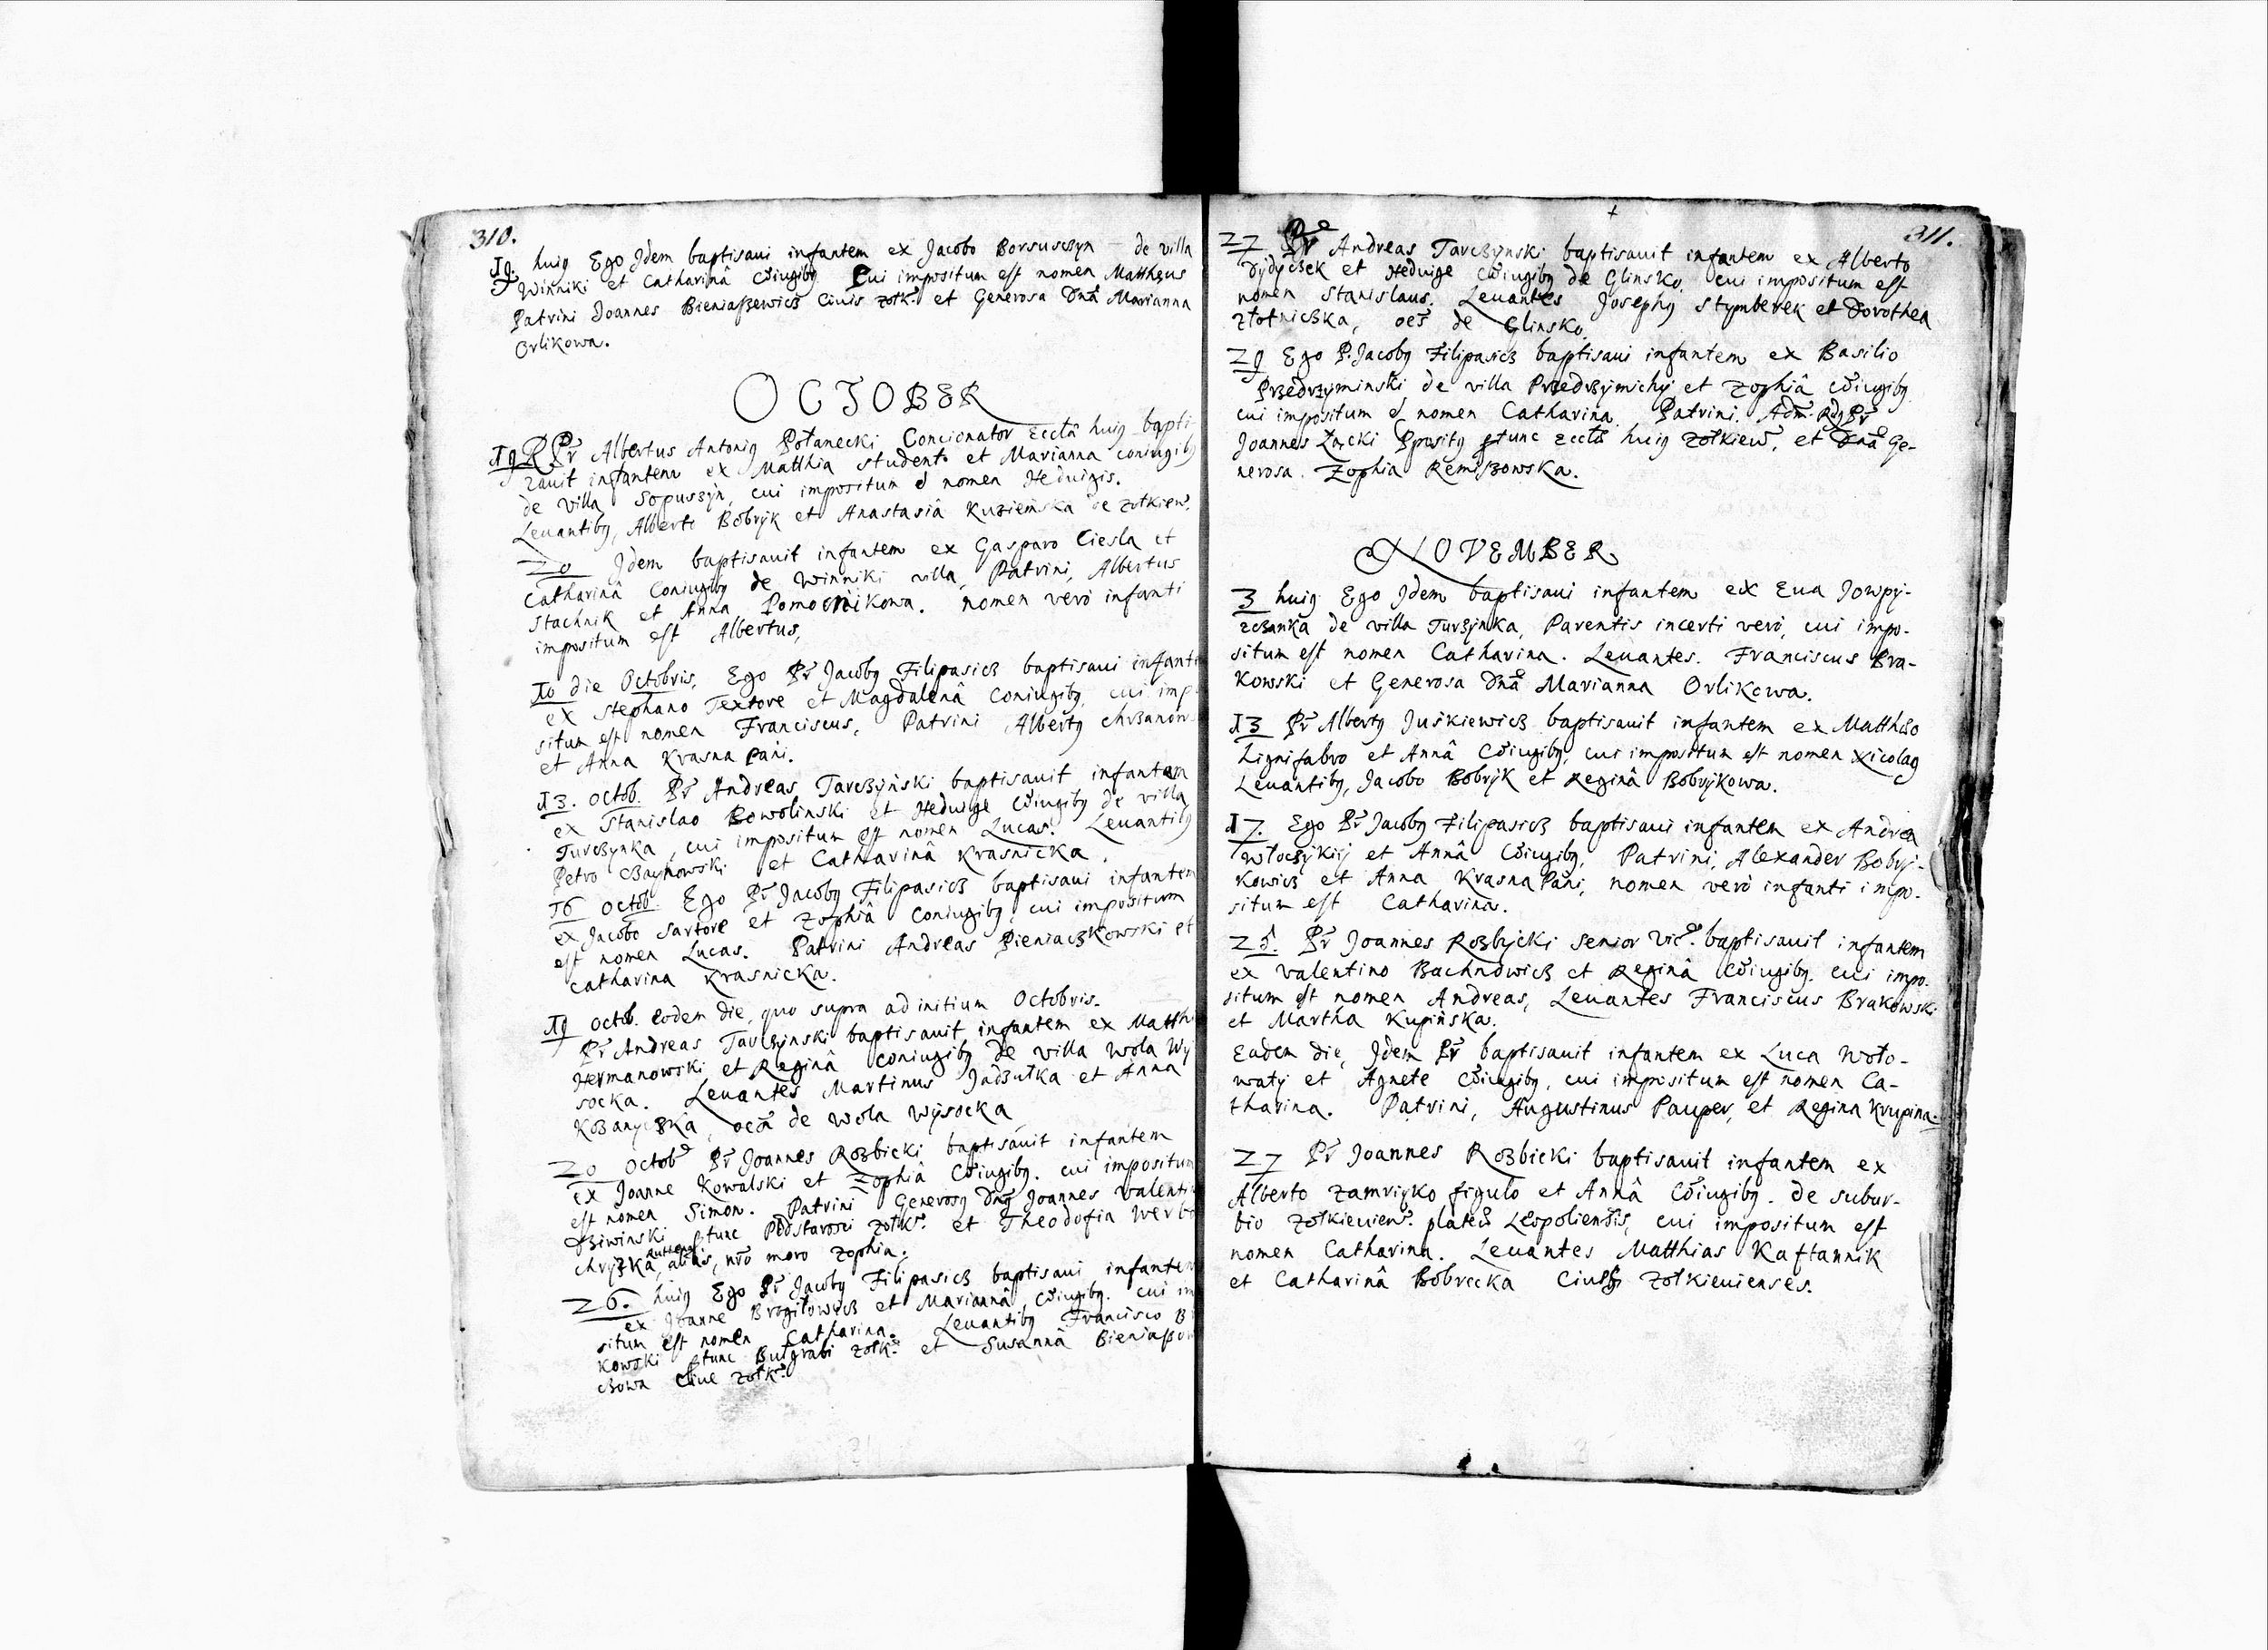 310.
19. huig Ego Jdem baptisaui infantem ex Jacobo Borsusczyn de villa
Winniki et Catharinâ Cõiugibg Cui impositum est nomen Matthęus
Patrini Joannes Bieniaszewicz Ciuis zołk. et Generosa Dnã Marianna
Orlikowa.
OCTOBER
19 R Pr Albertus Antonig Połanecki Concionator Eccłã huig bapti-
zauit infantem ex Matthia student et Marianna coniugibg
de villa Sopuszyn, cui impositum ẽ nomen Heduigis.
Leuantibg, Alberto Bobryk et Anastasiâ Kuziemska de zołkiew.
20 Jdem baptisauit infantem ex Gasparo Ciesla et
Catharinâ Coniugibg de Winniki villa, Patrini, Albertus
Stachnik et Anna Pomocnikowa. nomen verò infanti
impositum est Albertus,
10 die Octobris, Ego Pr Jacobg Filipasicz baptisaui infante
ex Stephano Textore et Magdalenâ Coniugibg, cui imp
situm est nomen Franciscus, Patrini Albertg Chrzanow
et Anna Krasna Pani.
13. Octob. Pr Andreas Tarczyński baptisauit infantem
ex Stanislao Rowolinski et Heduige Cõiugibg de villa
Turczynka, cui impositum est nomen Lucas. Leuantibg
Petro Czaykowski et Catharinâ Krasnicka.
16 Octob. Ego Pr Jacobg Filipasicz baptisaui infantem
ex Jacobo Sartore et Zophiâ Coniugibg, cui impositum
est nomen Lucas. Patrini Andreas Pieniaczkowski et
Catharina Krasnicka.
19 Octob. eodem die, quo supra ad initium Octobris.
Pr Andreas Tarczinski baptisauit infantem ex Matth
Hermanowski et Reginâ Coniugibg de villa Wola Wy
socka. Leuantes Martinus Jadzułka et Anna
oẽs de Wola Wysocka
20 Octob Pr Joannes Rozbicki baptisauit infantem
ex Joanne Kowalski et Zophiâ Cõiugibg. cui impositum
est nomen Simon. Patrini Generosg Dng Joannes Valenti
ptunc Podstarosci zołk. et Theodosia Werb
chryzka, alias, nrõ more Zophia.
26. huig Ego Pr Jacobg Filipasicz baptisaui infantem
ex Joanne et Mariannâ, Cõiugibg. cui im
situm est nomen Catharina. Leuantibg Francisco B
kowski ptunc Burgrabi zołk. et Susannâ Bieniaszo
czowa Ciue zołk.
311.
27 Pr Andreas Tarczynski baptisauit infantem ex Alberto
Dydyczek et Heduige Cõiugibg de Glinsko, cui impositum est
nomen Stanislaus. Leuantes Josephg Stymberek et Dorothea
Złotniczka, oẽs de Glinsko.
29 Ego P. Jacobg Filipasicz baptisaui infantem ex Basilio
Przedrzyminski de villa Przedrzymichy et Zophiâ Cõiugibg
cui impositum ẽ nomen Catharina. Patrini. Adm. Rdg Pr
Joannes Łącki Ppositg ptunc Eccłã huig Zołkiew, et Dnã Ge-
nerosa. Zophia Remiszowska.
NOVEMBER
3 huig Ego Jdem baptisaui infantem ex Eua Jowpy-
de villa Turzynka, Parentis incerti verò, cui impo-
situm est nomen Catharina. Leuantes. Franciscus Bra-
kowski et Generosa Dnã Marianna Orlikowa.
13 Pr Albertg Juśkiewicz baptisauit infantem ex Matthęo
Lignifabro et Annâ Cõiugibg, cui impositum est nomen Nicolag
Leuantibg, Jacobo Bobryk et Reginâ Bobrykowa.
17. Ego Pr Jacobg Filipasicz baptisaui infantem ex Andrea
Włoczykiy et Annâ Cõiugibg. Patrini, Alexander Bobry-
kowicz et Anna Krasna Pani, nomen verò infanti impo-
situm est Catharina.
25. Pr Joannes Rozbycki Senior Vic. baptisauit infantem
ex Valentino Bachnowicz et Reginâ Cõiugibg. cui impo.
situm est nomen Andreas, Leuantes Franciscus Brakowski
et Martha Kupińska.
Eadem die, Jdem Pr baptisauit infantem ex Luca Woło-
waty et Agnete Cõiugibg, cui impositum est nomen Ca-
tharina. Patrini, Augustinus Pauper, et Regina Krupina.
27 Pr Joannes Rozbicki baptisauit infantem ex
Alberto Zamryko figulo et Annâ Cõiugibg. de subur-
bio Zołkieuien. plateę Leopoliensis, cui impositum est
nomen Catharina. Leuantes Matthias Kaftannik
et Catharinâ Bobrecka Ciues Zołkieuienses.